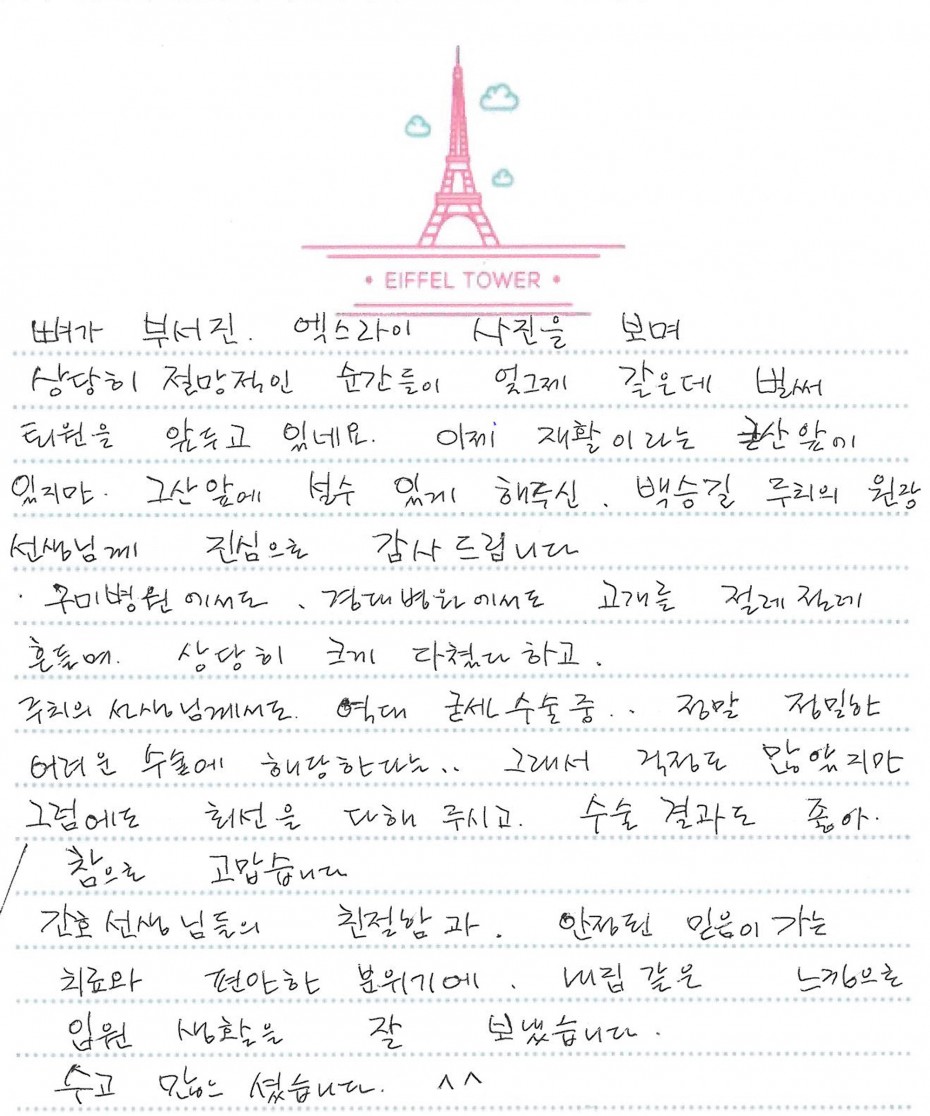 • EIFFEL TOWER •
뼈가 부서진. 엑스라이 사진을 보며
상당히 절망적인 순간들이 엊그제 같은데 벌써
퇴원을 앞두고 있네요. 이제 재활이라는 큰산앞에
있지만. 그산앞에 설수 있게 해주신. 백승길 주치의 원장
선생님께 진심으로 감사드립니다
· 구미병원에서도. 경대병원에서도 고개를 절레절레
흔들며. 상당히 크게 다쳤다하고.
주치의 선생님께서도. 역대 수술중.. 정말 정밀한
어려운 수술에 해당한다는.. 그래서 걱정도 많았지만
그럼에도 최선을 다해 주시고. 수술 결과도 좋아.
참으로 고맙습니다
간호선생님들의 친절함과. 안정된 믿음이 가는
치료와 편안한 분위기에. 내집같은 느낌으로
입원 생활을 잘 보냈습니다.
수고 많으셨습니다. ^^